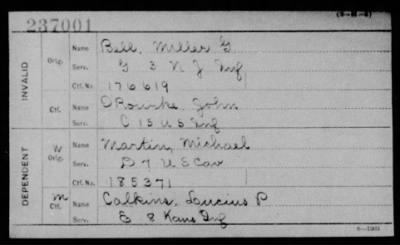 (3-111-3)
237001
INVALID
Orig. Name Bell, Miller G.
Serv. G 3 N J Inf
Ctf. No. 176619
Ctf. Name O'Rourke, John
Serv. C 15 U S Inf
DEPENDENT
W Orig. Name Martin, Michael
Serv. D 7 U S Cav
Ctf. No. 185371
M Ctf. Name Calkins, Lucius P
Serv. B 8 Kans Inf